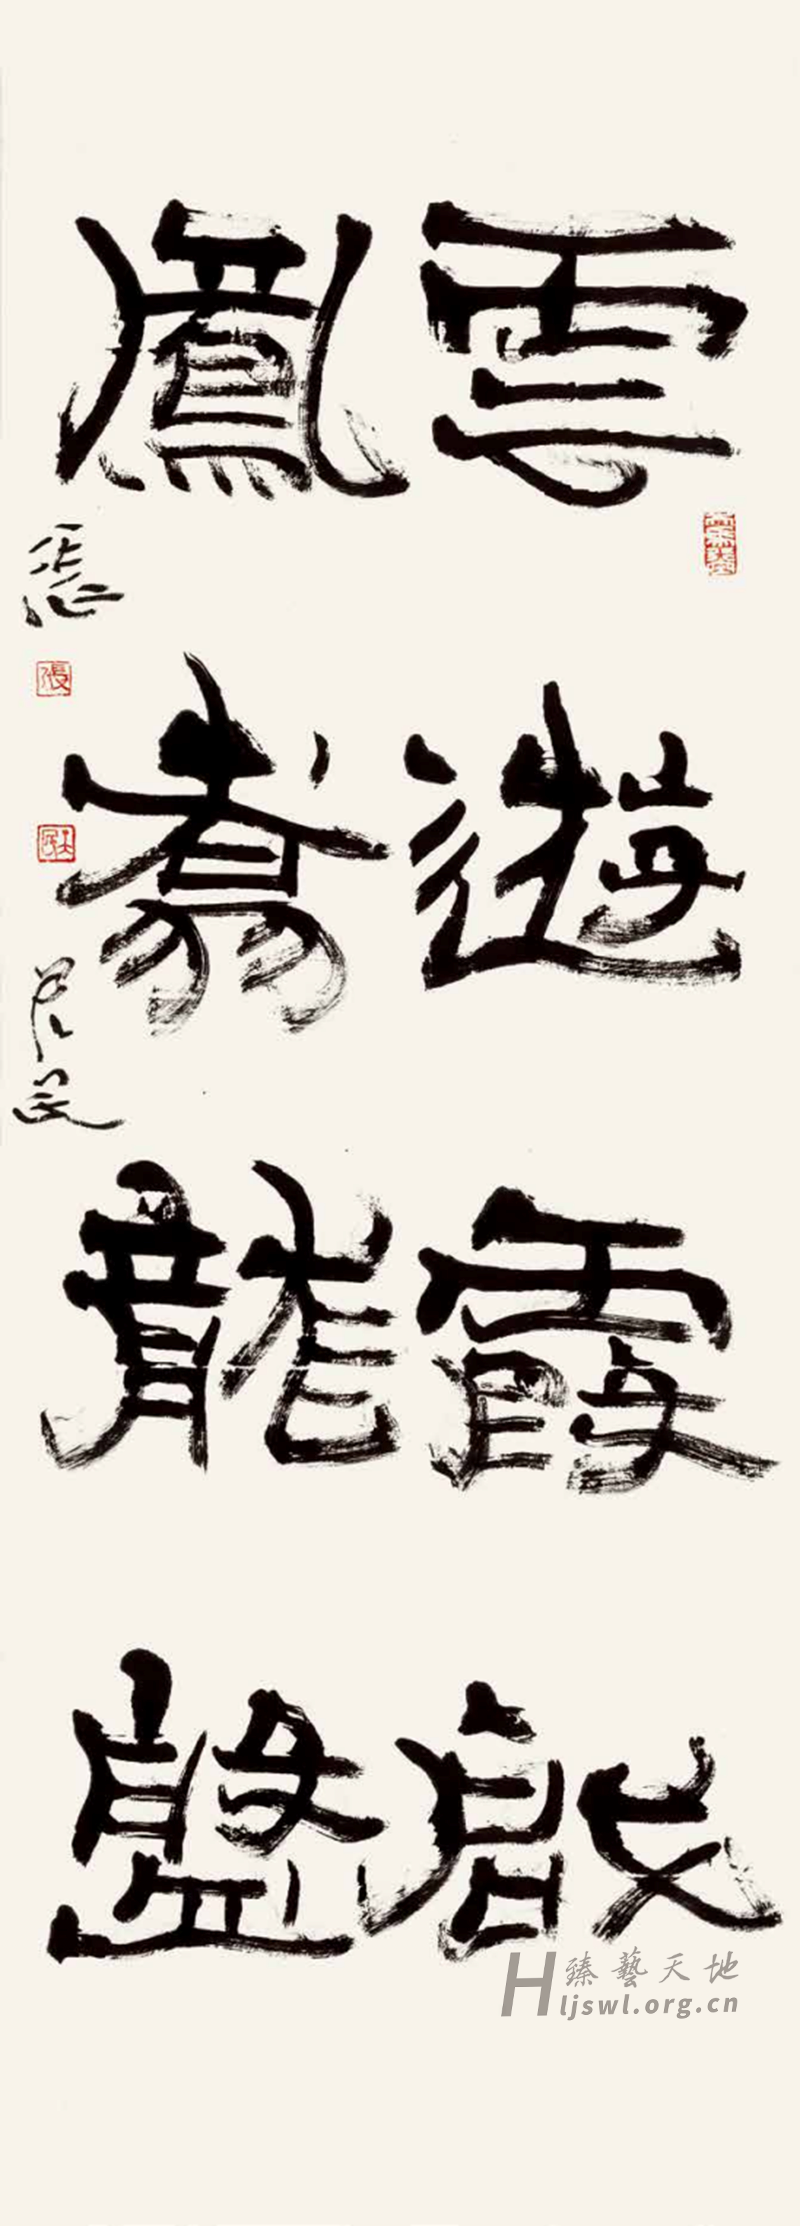 雲遊霞啟
鳳翥龍盤
張
臻藝天地
Hljswl.org.cn